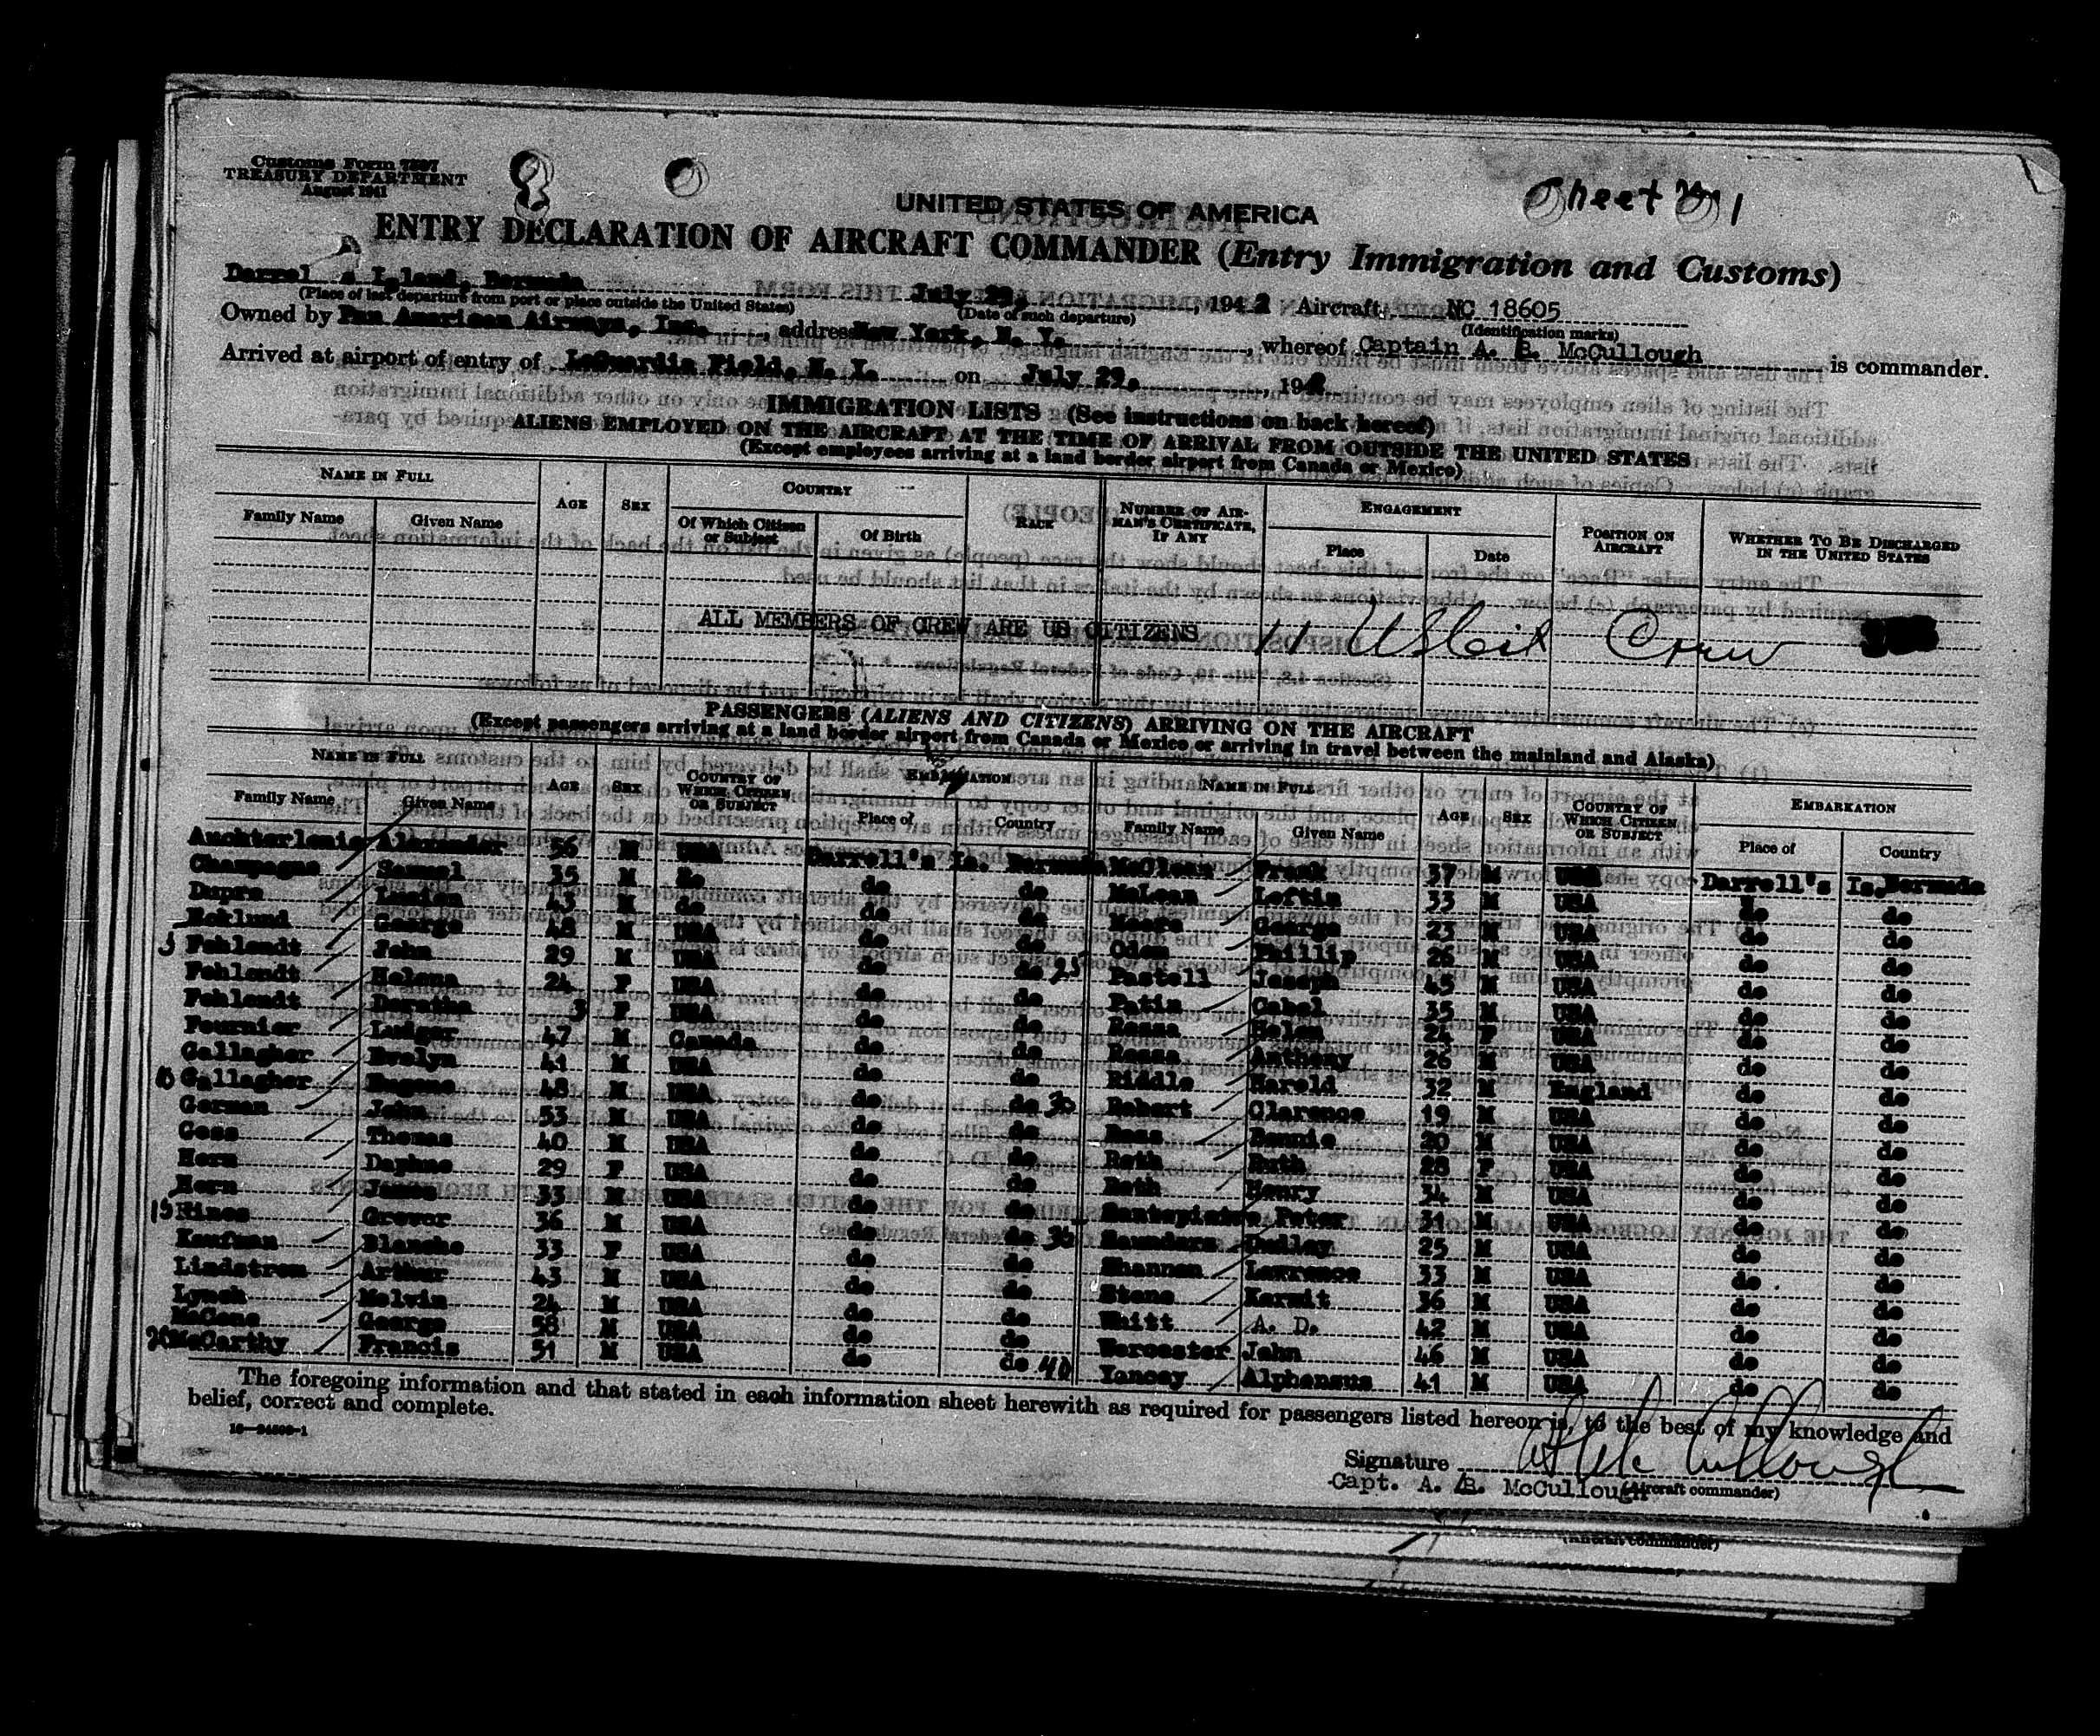 Customs Form 7507
TREASURY DEPARTMENT
August 1941
8
Sheet No 1
UNITED STATES OF AMERICA
ENTRY DECLARATION OF AIRCRAFT COMMANDER (Entry Immigration and Customs)
Island, Bermuda July 29, 1942 Aircraft NC 18605
(Place of last departure from port or place outside the United States) (Date of such departure) (Identification marks)
Owned by Pan American Airways, Inc. , address New York, N. Y. , whereof Captain A. B. McCullough is commander.
Arrived at airport of entry of LaGuardia Field, N. Y. on July 29, , 1942
IMMIGRATION LISTS (See instructions on back hereof)
ALIENS EMPLOYED ON THE AIRCRAFT AT THE TIME OF ARRIVAL FROM OUTSIDE THE UNITED STATES
(Except employees arriving at a land border airport from Canada or Mexico)
NAME IN FULL AGE SEX COUNTRY RACE NUMBER OF AIRMAN'S CERTIFICATE, IF ANY ENGAGEMENT POSITION ON AIRCRAFT WHETHER TO BE DISCHARGED IN THE UNITED STATES
Family Name Given Name Of Which Citizen or Subject Of Birth Place Date
ALL MEMBERS OF CREW ARE US CITIZENS 11 US Cit Crew
PASSENGERS (ALIENS AND CITIZENS) ARRIVING ON THE AIRCRAFT
(Except passengers arriving at a land border airport from Canada or Mexico or arriving in travel between the mainland and Alaska)
NAME IN FULL AGE SEX COUNTRY OF WHICH CITIZEN OR SUBJECT EMBARKATION NAME IN FULL AGE SEX COUNTRY OF WHICH CITIZEN OR SUBJECT EMBARKATION
Family Name Given Name Place of Country Family Name Given Name Place of Country
Auchterlonie Alexander 56 M USA Darrell's Is. Bermuda McClean Frank 37 M USA Darrell's Is. Bermuda
Champagne Samuel 35 M do do do McLean Loftin 33 M USA do do
Dupre Lucien 43 M do do do George 23 M USA do do
Ecklund George 48 M USA do do Oden Phillip 26 M USA do do
5 Fehlendt John 29 M USA do do 25 Pastell Joseph 45 M USA do do
Fehlendt Helena 24 F USA do do Patin Cabel 35 M USA do do
Fehlendt Doretha 3 F USA do do Ressa Helen 24 F USA do do
Fournier Ludger 47 M Canada do do Ressa Anthony 26 M USA do do
Gallagher Evelyn 41 M USA do do Riddle Harold 32 M England do do
10 Gallagher Eugene 48 M USA do do 30 Robert Clarence 19 M USA do do
Gorman John 53 M USA do do Ross Bennie 20 M USA do do
Goss Thomas 40 M USA do do Roth Ruth 28 F USA do do
Horn Daphne 29 F USA do do Roth Henry 34 M USA do do
Horn James 33 M USA do do Peter 31 M USA do do
15 Hines Grover 36 M USA do do Saunders Dudley 25 M USA do do
Kaufman Blanche 33 F USA do do Shannon Lawrence 33 M USA do do
Lindstrom Arthur 43 M USA do do Stone Kermit 36 M USA do do
Lynch Melvin 24 M USA do do Whitt A. D. 42 M USA do do
McGene George 58 M USA do do Worcester John 46 M USA do do
20 McCarthy Francis 51 M USA do do 40 Yancey Alphonsus 41 M USA do do
The foregoing information and that stated in each information sheet herewith as required for passengers listed hereon is, to the best of my knowledge and
belief, correct and complete.
Signature A B McCullough
Capt. A. B. McCullough (Aircraft commander)
(Aircraft commander)